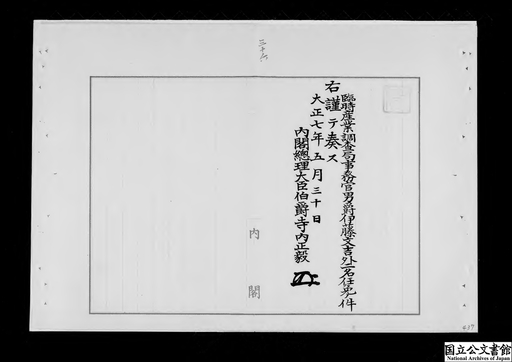 臨時産業調査局事務官男爵伊藤文吉外一名任免ノ件
右謹テ奏ス
大正七年五月三十日
内閣總理大臣伯爵寺内正毅
内閣
国立公文書館
National Archives of Japan